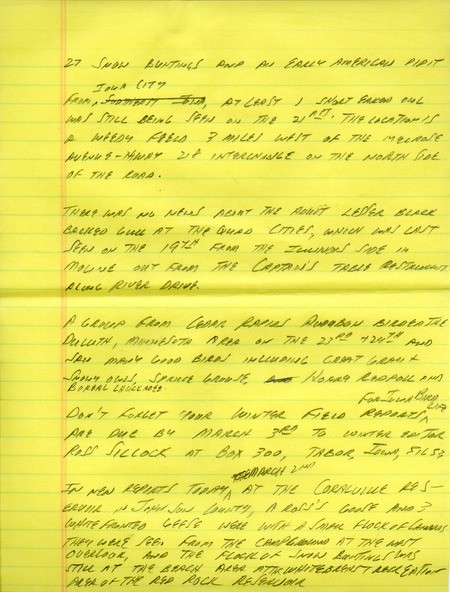 27 SNOW BUNTINGS AND AN EARLY AMERICAN PIPIT
IOWA CITY
FROM, SOUTHEAST IOWA, AT LEAST 1 SHORT EARED OWL
WAS STILL BEING SEEN ON THE 21ST. THE LOCATION IS
A WEEDY FIELD 3 MILES WEST OF THE MELROSE
AVENUE-HIWAY 218 INTERCHANGE ON THE NORTH SIDE
OF THE ROAD.
THERE WAS NO NEWS ABOUT THE ADULT LESSER BLACK
BACKED GULL AT THE QUAD CITIES, WHICH WAS LAST
SEEN ON THE 19TH FROM THE ILLINOIS SIDE IN
MOLINE OUT FROM THE CAPTAIN'S TABLE RESTAURANT
ALONG RIVER DRIVE.
A GROUP FROM CEDAR RAPIDS AUDUBON BIRDED THE
DULUTH, MINNESOTA AREA ON THE 23RD + 24TH AND
SAW MANY GOOD BIRDS INCLUDING GREAT GRAY +
SNOWY OWLS, SPRUCE GROUSE, HOARY REDPOLL AND
BOREAL CHICKADEE.
FOR IOWA BIRD LIFE
DON'T FORGET YOUR WINTER FIELD REPORTS
ARE DUE BY MARCH 3RD TO WINTER EDITOR
ROSS SILCOCK AT BOX 300, TABOR, IOWA, 51653
MARCH 2ND
IN NEW REPORTS TODAY, AT THE CORALVILLE RES-
ERVOIR IN JOHNSON COUNTY, A ROSS'S GOOSE AND 3
WHITE FRONTED GEESE WERE WITH A SMALL FLOCK OF CANADAS
THEY WERE SEEN FROM THE CAMPGROUND AT THE WEST
OVERLOOK, AND THE FLOCK OF SNOW BUNTINGS WAS
STILL AT THE BEACH AREA AT THE WHITEBREAST RECREATION
AREA OF THE RED ROCK RESERVOIR